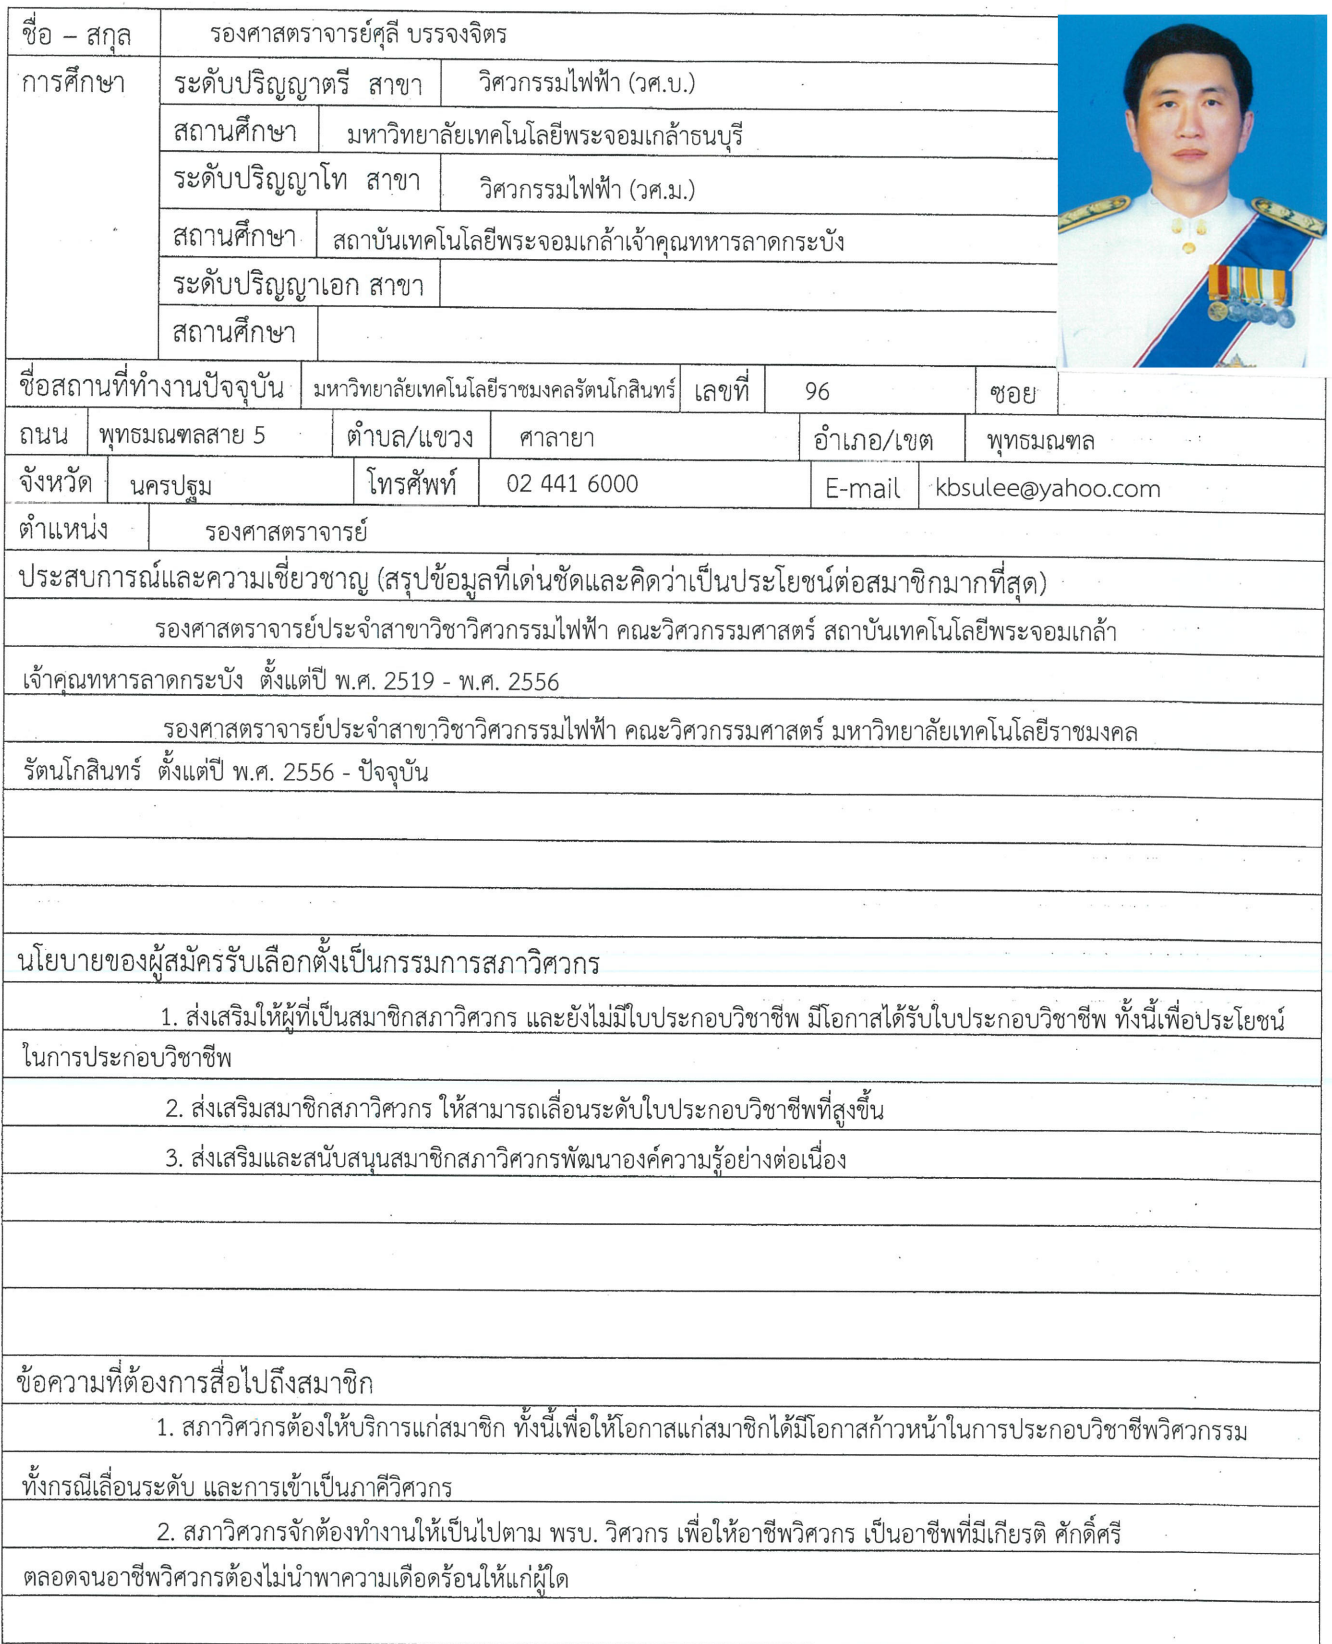 ชื่อ – สกุล รองศาสตราจารย์ศุลี บรรจงจิตร
การศึกษา ระดับปริญญาตรี สาขา วิศวกรรมไฟฟ้า (วศ.บ.)
สถานศึกษา มหาวิทยาลัยเทคโนโลยีพระจอมเกล้าธนบุรี
ระดับปริญญาโท สาขา วิศวกรรมไฟฟ้า (วศ.ม.)
สถานศึกษา สถาบันเทคโนโลยีพระจอมเกล้าเจ้าคุณทหารลาดกระบัง
ระดับปริญญาเอก สาขา
สถานศึกษา
ชื่อสถานที่ทำงานปัจจุบัน มหาวิทยาลัยเทคโนโลยีราชมงคลรัตนโกสินทร์ เลขที่ 96 ซอย
ถนน พุทธมณฑลสาย 5 ตำบล/แขวง ศาลายา อำเภอ/เขต พุทธมณฑล
จังหวัด นครปฐม โทรศัพท์ 02 441 6000 E-mail kbsulee@yahoo.com
ตำแหน่ง รองศาสตราจารย์
ประสบการณ์และความเชี่ยวชาญ (สรุปข้อมูลที่เด่นชัดและคิดว่าเป็นประโยชน์ต่อสมาชิกมากที่สุด)
รองศาสตราจารย์ประจำสาขาวิชาวิศวกรรมไฟฟ้า คณะวิศวกรรมศาสตร์ สถาบันเทคโนโลยีพระจอมเกล้า
เจ้าคุณทหารลาดกระบัง ตั้งแต่ปี พ.ศ. 2519 - พ.ศ. 2556
รองศาสตราจารย์ประจำสาขาวิชาวิศวกรรมไฟฟ้า คณะวิศวกรรมศาสตร์ มหาวิทยาลัยเทคโนโลยีราชมงคล
รัตนโกสินทร์ ตั้งแต่ปี พ.ศ. 2556 - ปัจจุบัน
นโยบายของผู้สมัครรับเลือกตั้งเป็นกรรมการสภาวิศวกร
1. ส่งเสริมให้ผู้ที่เป็นสมาชิกสภาวิศวกร และยังไม่มีใบประกอบวิชาชีพ มีโอกาสได้รับใบประกอบวิชาชีพ ทั้งนี้เพื่อประโยชน์
ในการประกอบวิชาชีพ
2. ส่งเสริมสมาชิกสภาวิศวกร ให้สามารถเลื่อนระดับใบประกอบวิชาชีพที่สูงขึ้น
3. ส่งเสริมและสนับสนุนสมาชิกสภาวิศวกรพัฒนาองค์ความรู้อย่างต่อเนื่อง
ข้อความที่ต้องการสื่อไปถึงสมาชิก
1. สภาวิศวกรต้องให้บริการแก่สมาชิก ทั้งนี้เพื่อให้โอกาสแก่สมาชิกได้มีโอกาสก้าวหน้าในการประกอบวิชาชีพวิศวกรรม
ทั้งกรณีเลื่อนระดับ และการเข้าเป็นภาคีวิศวกร
2. สภาวิศวกรจักต้องทำงานให้เป็นไปตาม พรบ. วิศวกร เพื่อให้อาชีพวิศวกร เป็นอาชีพที่มีเกียรติ ศักดิ์ศรี
ตลอดจนอาชีพวิศวกรต้องไม่นำพาความเดือดร้อนให้แก่ผู้ใด